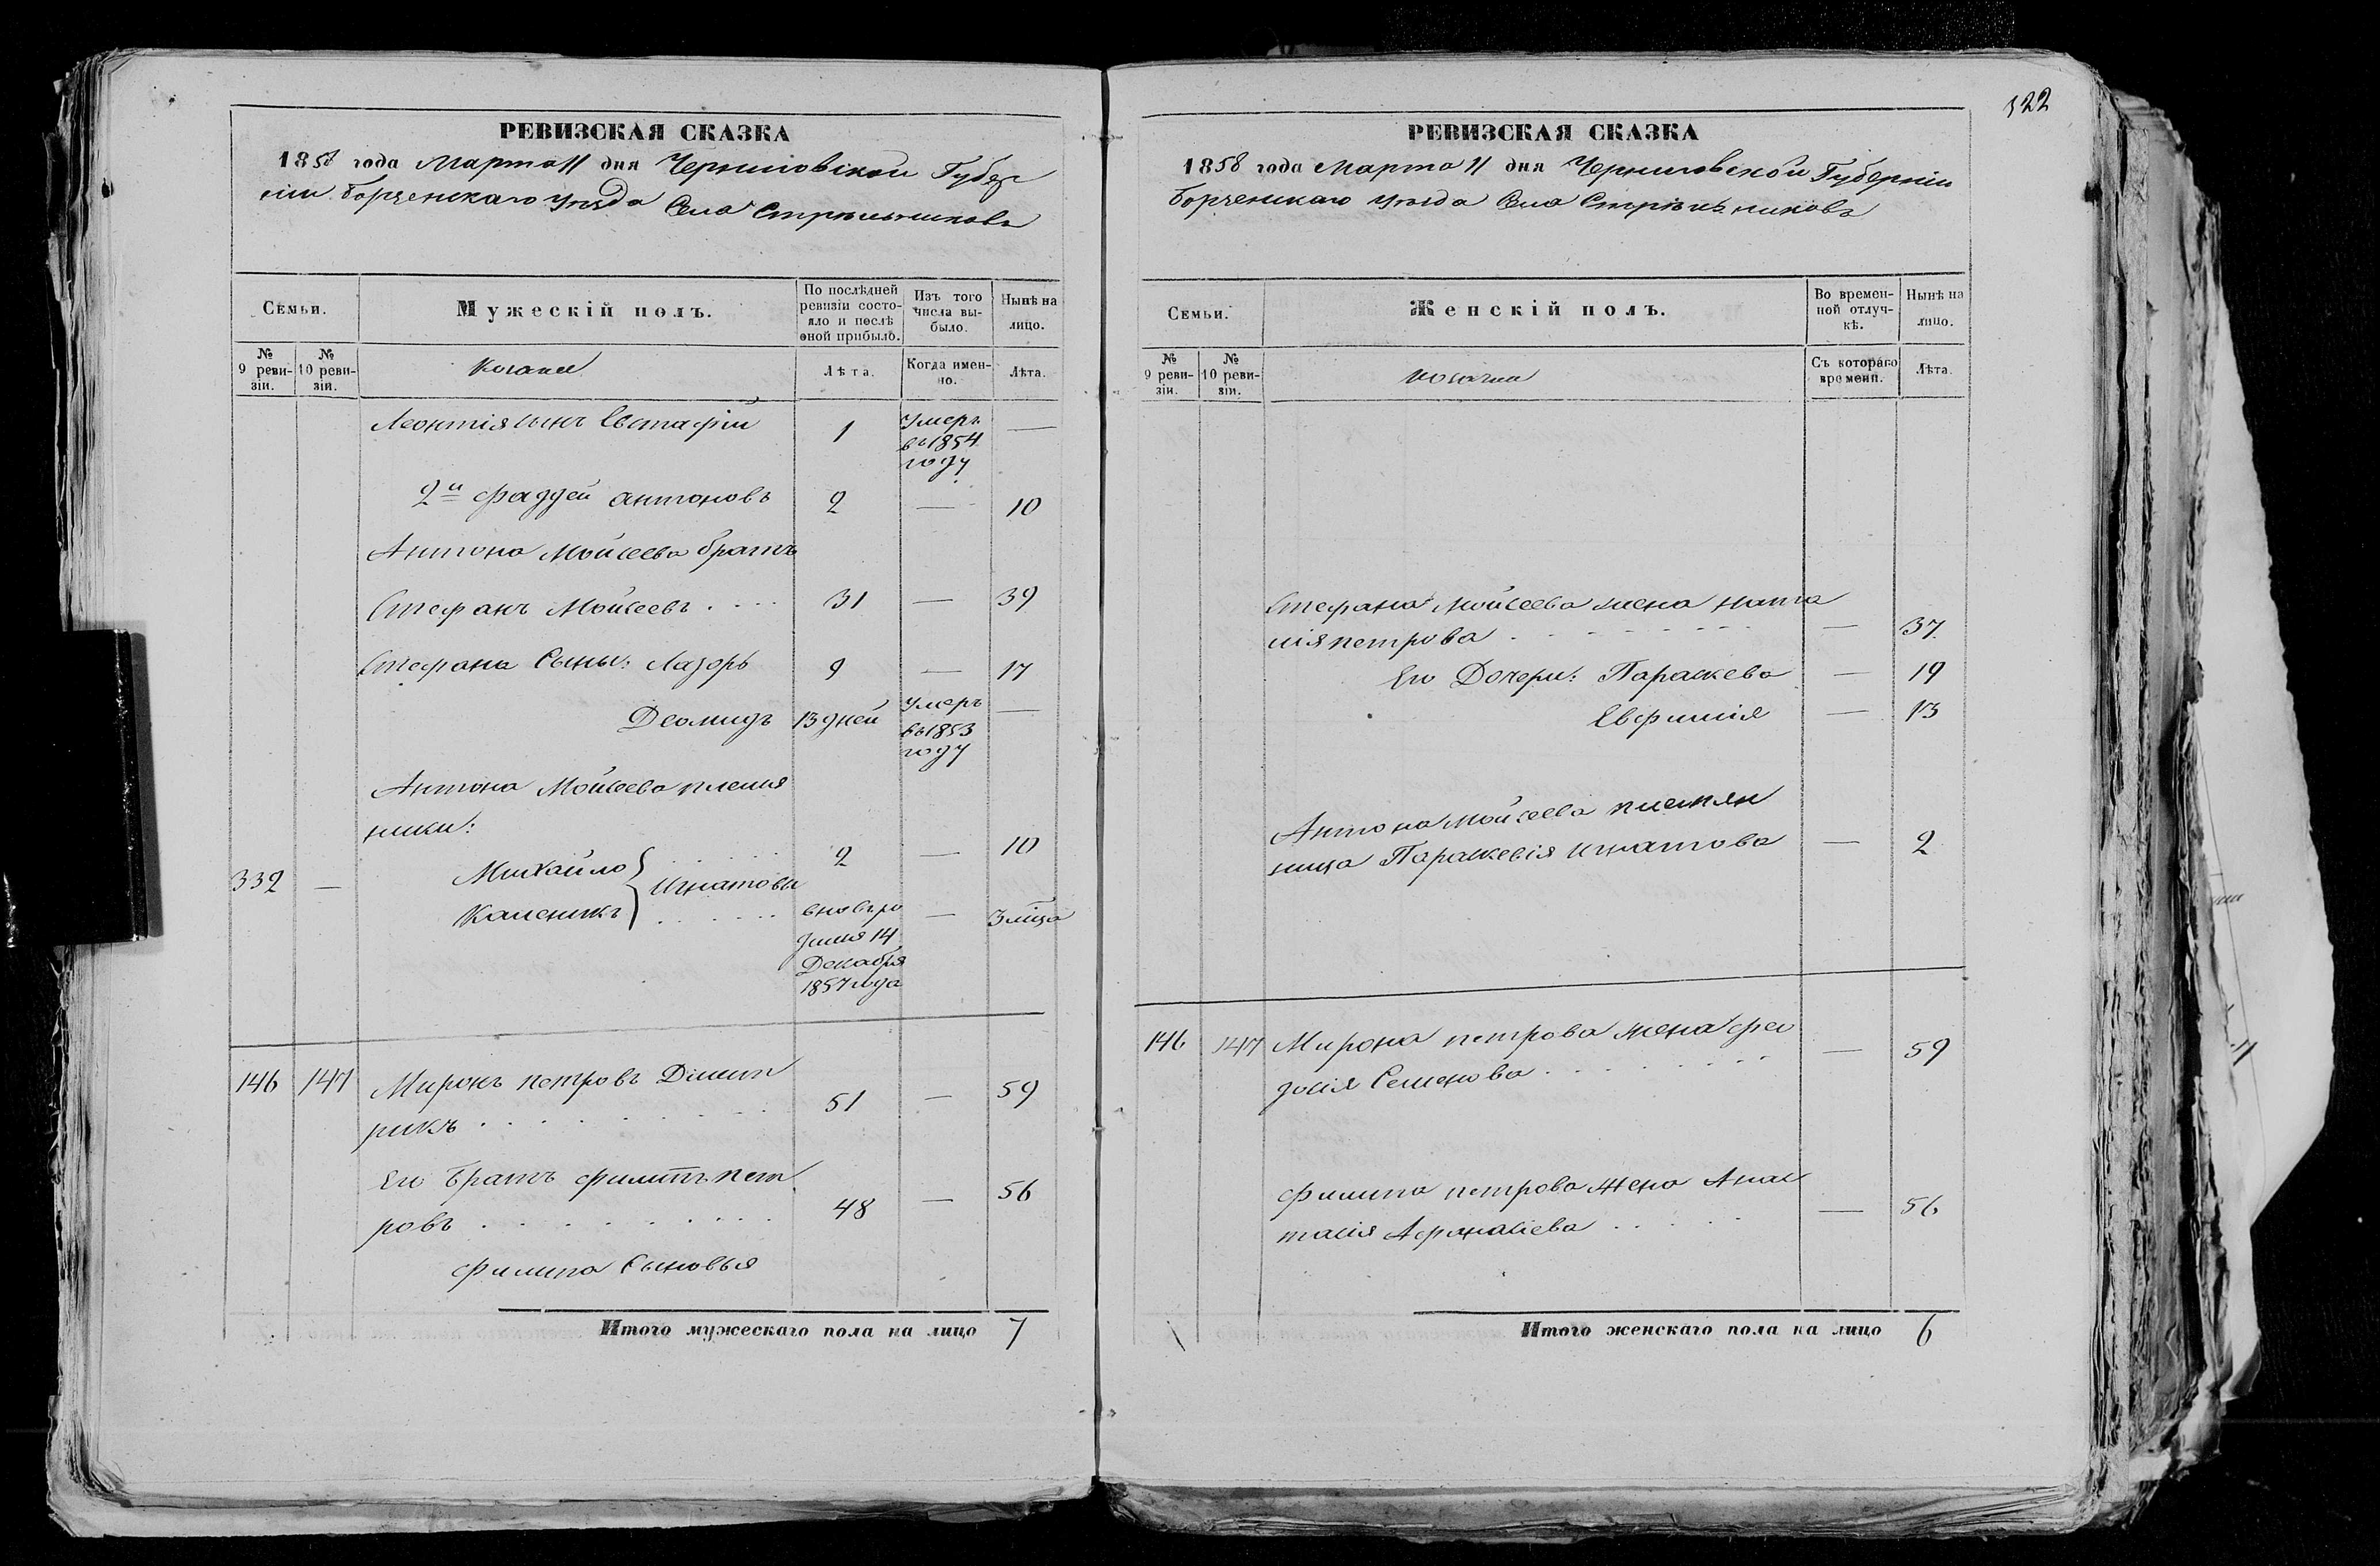 РЕВИЗСКАЯ СКАЗКА
1858 года Марта 11 дня Черниговской Губер
ніи Борзенскаго Уѣзда Села Стрѣльниковъ
Семьи.
Мужескій полъ.
По послѣдней ревизіи состо-
яло и послѣ
оной прибыло.
Изъ того
числа вы-
было.
Нынѣ на
лицо.
№
9 реви-
зіи.
№
10 реви-
зіи.
Козаки
Лѣта.
Когда имен-
но.
Лѣта.
Леонтія сынъ Евстафій 1 Умеръ —
въ 1854
году
2й Фаддей Антоновъ 2 — 10
Антона Мойсеева братъ
Стефанъ Мойсеевъ . . . . 31 — 39
Стефана Сыны: Лазорь 9 — 17
Деомидъ 13 дней Умеръ —
въ 1853
году
Антона Мойсеева племя
ники:
332 — Михайло . . . . 2 — 10
Игнатовы
Каленикъ . . . . вновь ро — 3 мца
дился 14
Декабря
1857 года
146 147 Миронъ Петровъ Димит
рикъ . . . . . . . 51 — 59
Его Братъ Филипъ Пет
ровъ . . . . . . . . 48 — 56
Филипа Сыновья
Итого мужескаго пола на лицо 7
122
РЕВИЗСКАЯ СКАЗКА
1858 года Марта 11 дня Черниговской Губерніи
Борзенскаго Уѣзда Села Стрѣльниковъ
Семьи.
Женскій полъ.
Во времен-
ной отлуч-
кѣ.
Нынѣ на
лицо.
№
9 реви-
зіи.
№
10 реви-
зіи.
Козачки
Съ котораго
времени.
Лѣта.
Стефана Мойсеева жена Ната
лія Петрова . . . . . . . . — 37
Его Дочери: Параскева — 19
Евфимія — 13
Антона Мойсеева племян
ница Параскевія Игнатова — 2
146 147 Мирона Петрова Жена Фео
досія Семенова . . . . . . . . — 59
Филипа Петрова Жена Анас
тасія Афанасіева . . . . . — 56
Итого женскаго пола на лицо 6